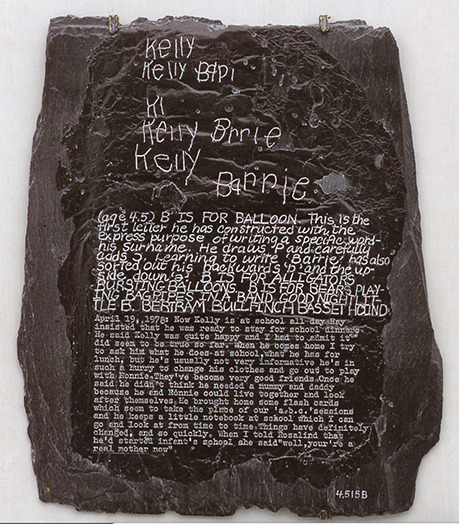 Kelly
Kelly BAPI
KI
Kelly Brrie
Kelly
Barrie.
(age 4.5) B IS FOR BALLOON. This is the
first letter he has constructed with the
express purpose of writing a specific word-
his surname. He draws 'l' and carefully
adds 3. Learning to write 'Barrie' has also
sorted out his backwards 'r' and the up-
side-down 'e'. B IS FOR ALLIGATORS
BURSTING BALLOONS. B IS FOR BEARS PLAY-
ING BAGPIPES IN A BAND. GOOD NIGHT LIT-
TLE B. BERTRAM BULLFINCH BASSET HOUND.
April 19, 1978: Now Kelly is at school all day. Ray
insisted that he was ready to stay for school dinners.
He said Kelly was quite happy and I had to admit it
did seem to be true so far. When he comes home I try
to ask him what he does at school, what he has for
lunch, but he's usually not very informative he's in
such a hurry to change his clothes and go out to play
with Ronnie. They've become very good friends. Once he
said he didn't think he needed a mummy and daddy
because he and Ronnie could live together and look
after themselves. He brought home some flash cards
which seem to take the place of our 'a.b.c.' sessions
and he keeps a little notebook at school which I can
go and look at from time to time. Things have definitely
changed, and so quickly. When I told Rosalind that
he'd started infant's school she said "well, your're a
real mother now"
4.515B